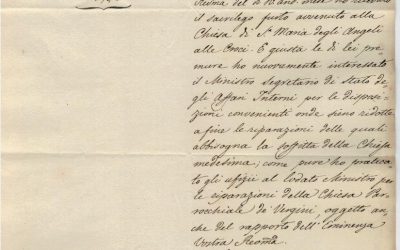 Reoma del 4 10 and. mese ho rilevato
il sacrilego furto avvenuto alla
Chiesa di S.ª Maria degli Angeli
alle Croci. E giusta le di lei pre
mure ho nuovamente interessato
il Ministro Segretario di Stato de
gli Affari Interni per le disposi
zioni convenienti onde sieno ridotte
a fine le riparazioni delle quali
abbisogna la soffitta della Chiesa
medesima; come pure ho pratica
to gli ufizii al lodato Ministro per
le riparazioni della Chiesa Par
rocchiale de' Vergini, oggetto an
che del rapporto dell'Eminenza
Vostra Reoma.